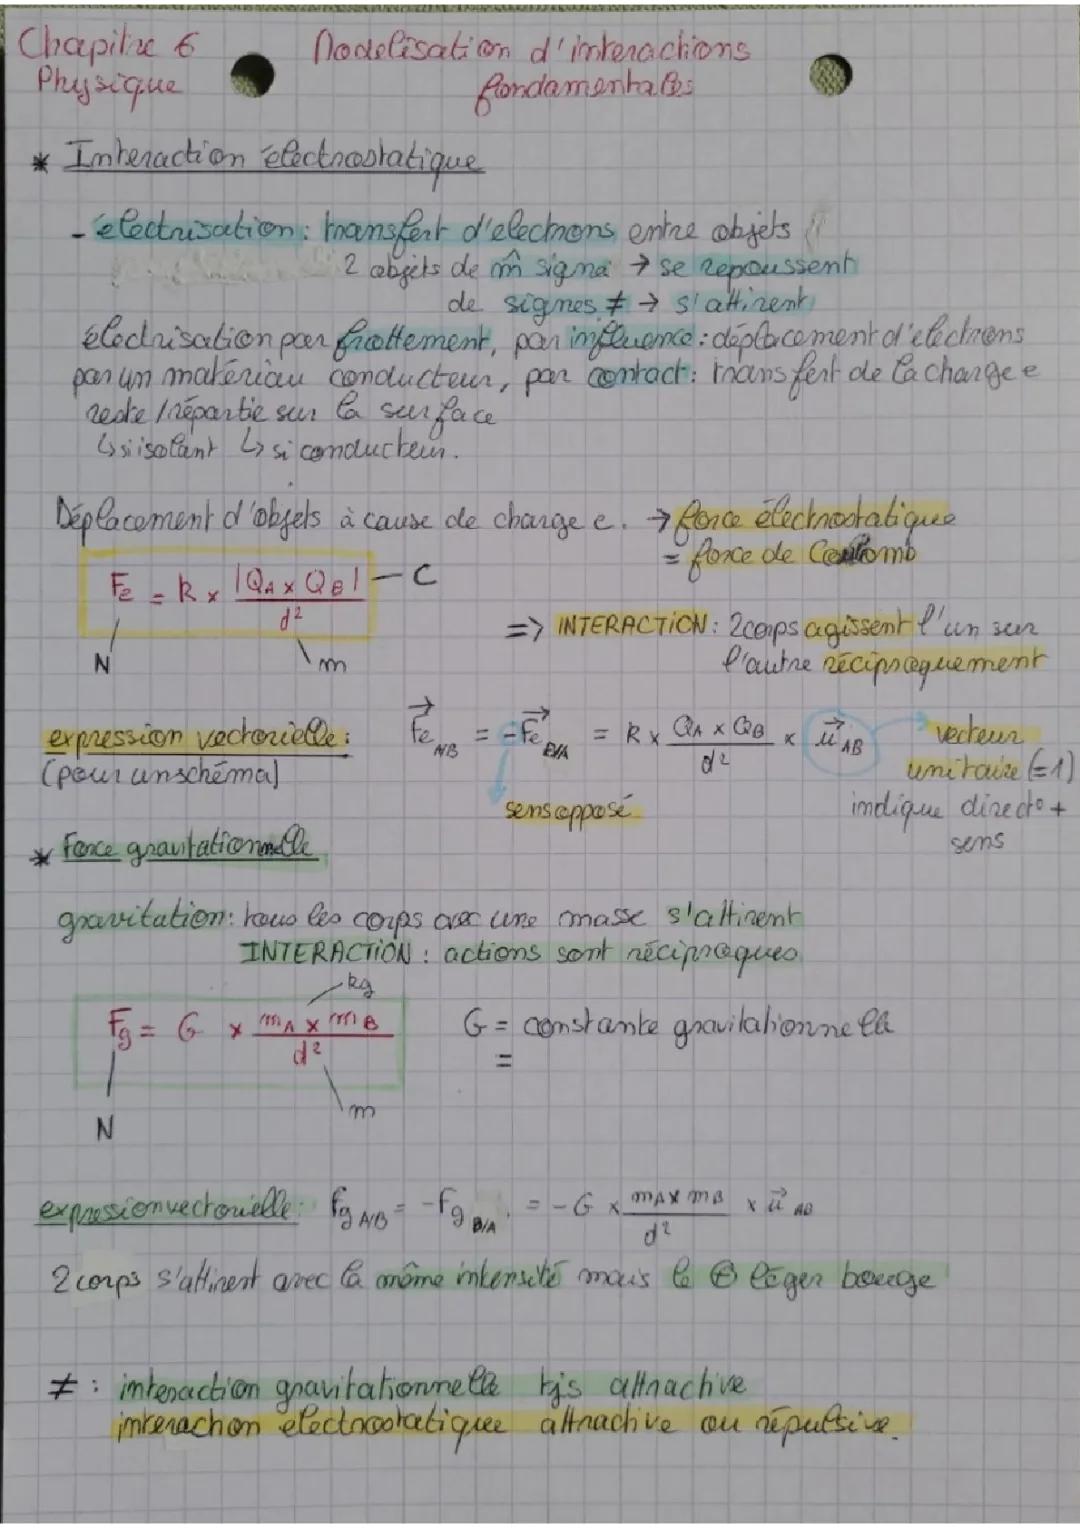 Chapitre 6 Modélisation d'interactions
Physique fondamentales
* Interaction électrostatique
- électrisation : transfert d'electrons entre objets
2 objets de m̂ signe → se repoussent
de signes ≠ → s'attirent
électrisation par frottement, par influence : déplacement d'électrons
par un matériau conducteur, par contact : transfert de la charge e
reste / répartie sur la surface
↳ si isolant ↳ si conducteur.
Déplacement d'objets à cause de charge e. → force électrostatique
= force de Coulomb
Fe = k × |QA × QB| / d² — C
N m
=> INTERACTION : 2 corps agissent l'un sur
l'autre réciproquement
expression vectorielle : F⃗e A/B = -F⃗e B/A = k × QA × QB / d² × u⃗ AB → vecteur
(pour un schéma) unitaire (=1)
sens opposé indique direct° +
sens
* Force gravitationnelle
gravitation : tous les corps avec une masse s'attirent
INTERACTION : actions sont réciproques
kg
Fg = G × mA × mB / d² G = constante gravitationnelle
=
N m
expression vectorielle : Fg A/B = -Fg B/A = - G × mA × mB / d² × u⃗ AB
2 corps s'attirent avec la même intensité mais le ⊕ léger bouge
≠ : interaction gravitationnelle tjs attractive
interaction électrostatique attractive ou répulsive.